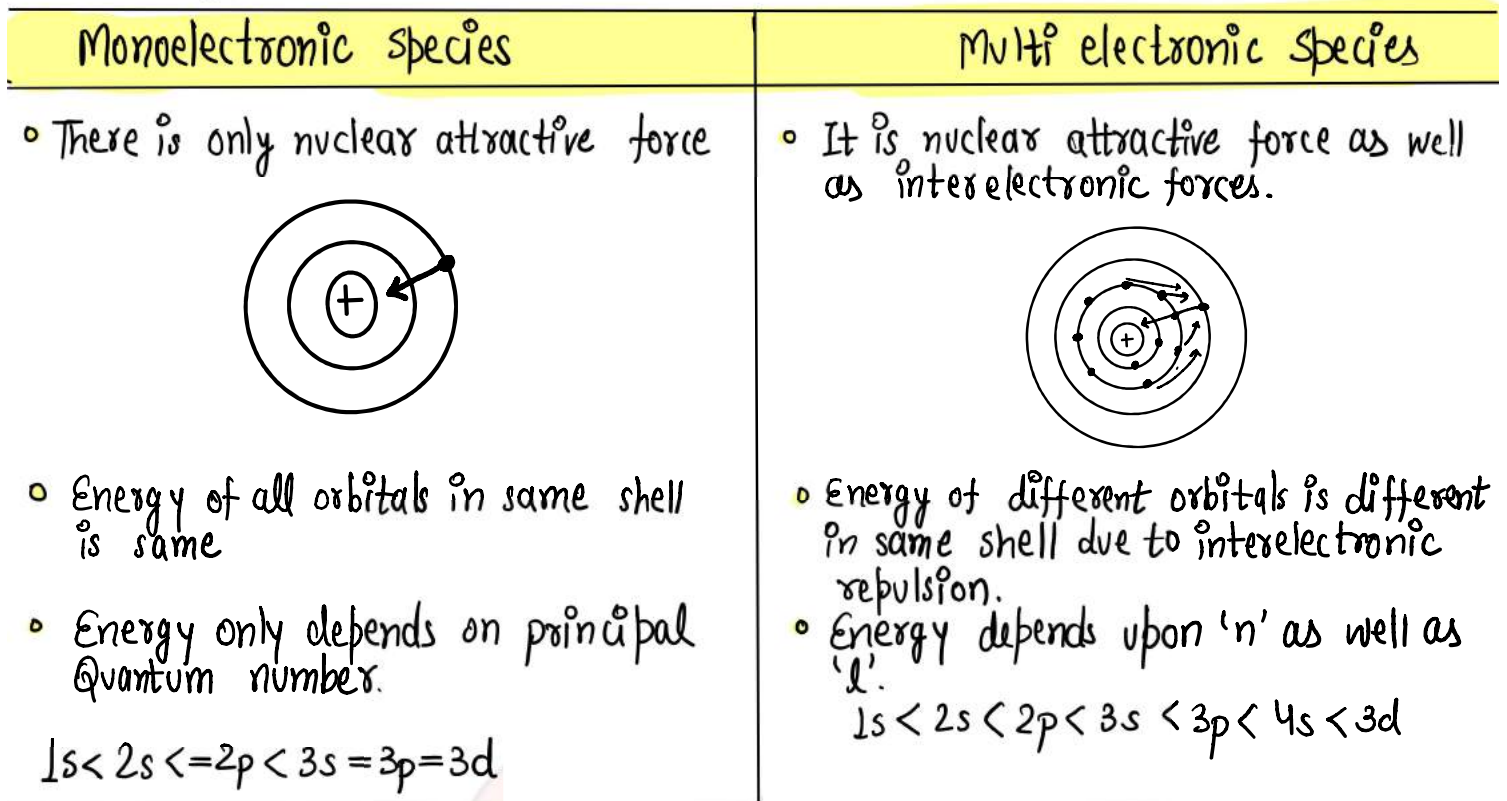 Monoelectronic species
• There is only nuclear attractive force
+
• Energy of all orbitals in same shell
is same
• Energy only depends on principal
Quantum number.
1s < 2s <=2p < 3s = 3p = 3d
Multi electronic species
• It is nuclear attractive force as well
as interelectronic forces.
+
• Energy of different orbitals is different
in same shell due to interelectronic
repulsion.
• Energy depends upon 'n' as well as
'l'.
1s < 2s < 2p < 3s < 3p < 4s < 3d